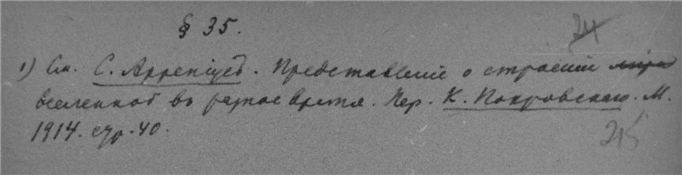 § 35.
24
1) См. С. Аррениус. Представление о строении мира
вселенной въ разное время. Пер. К. Покровскаго. М.
1914. стр. 40.
215